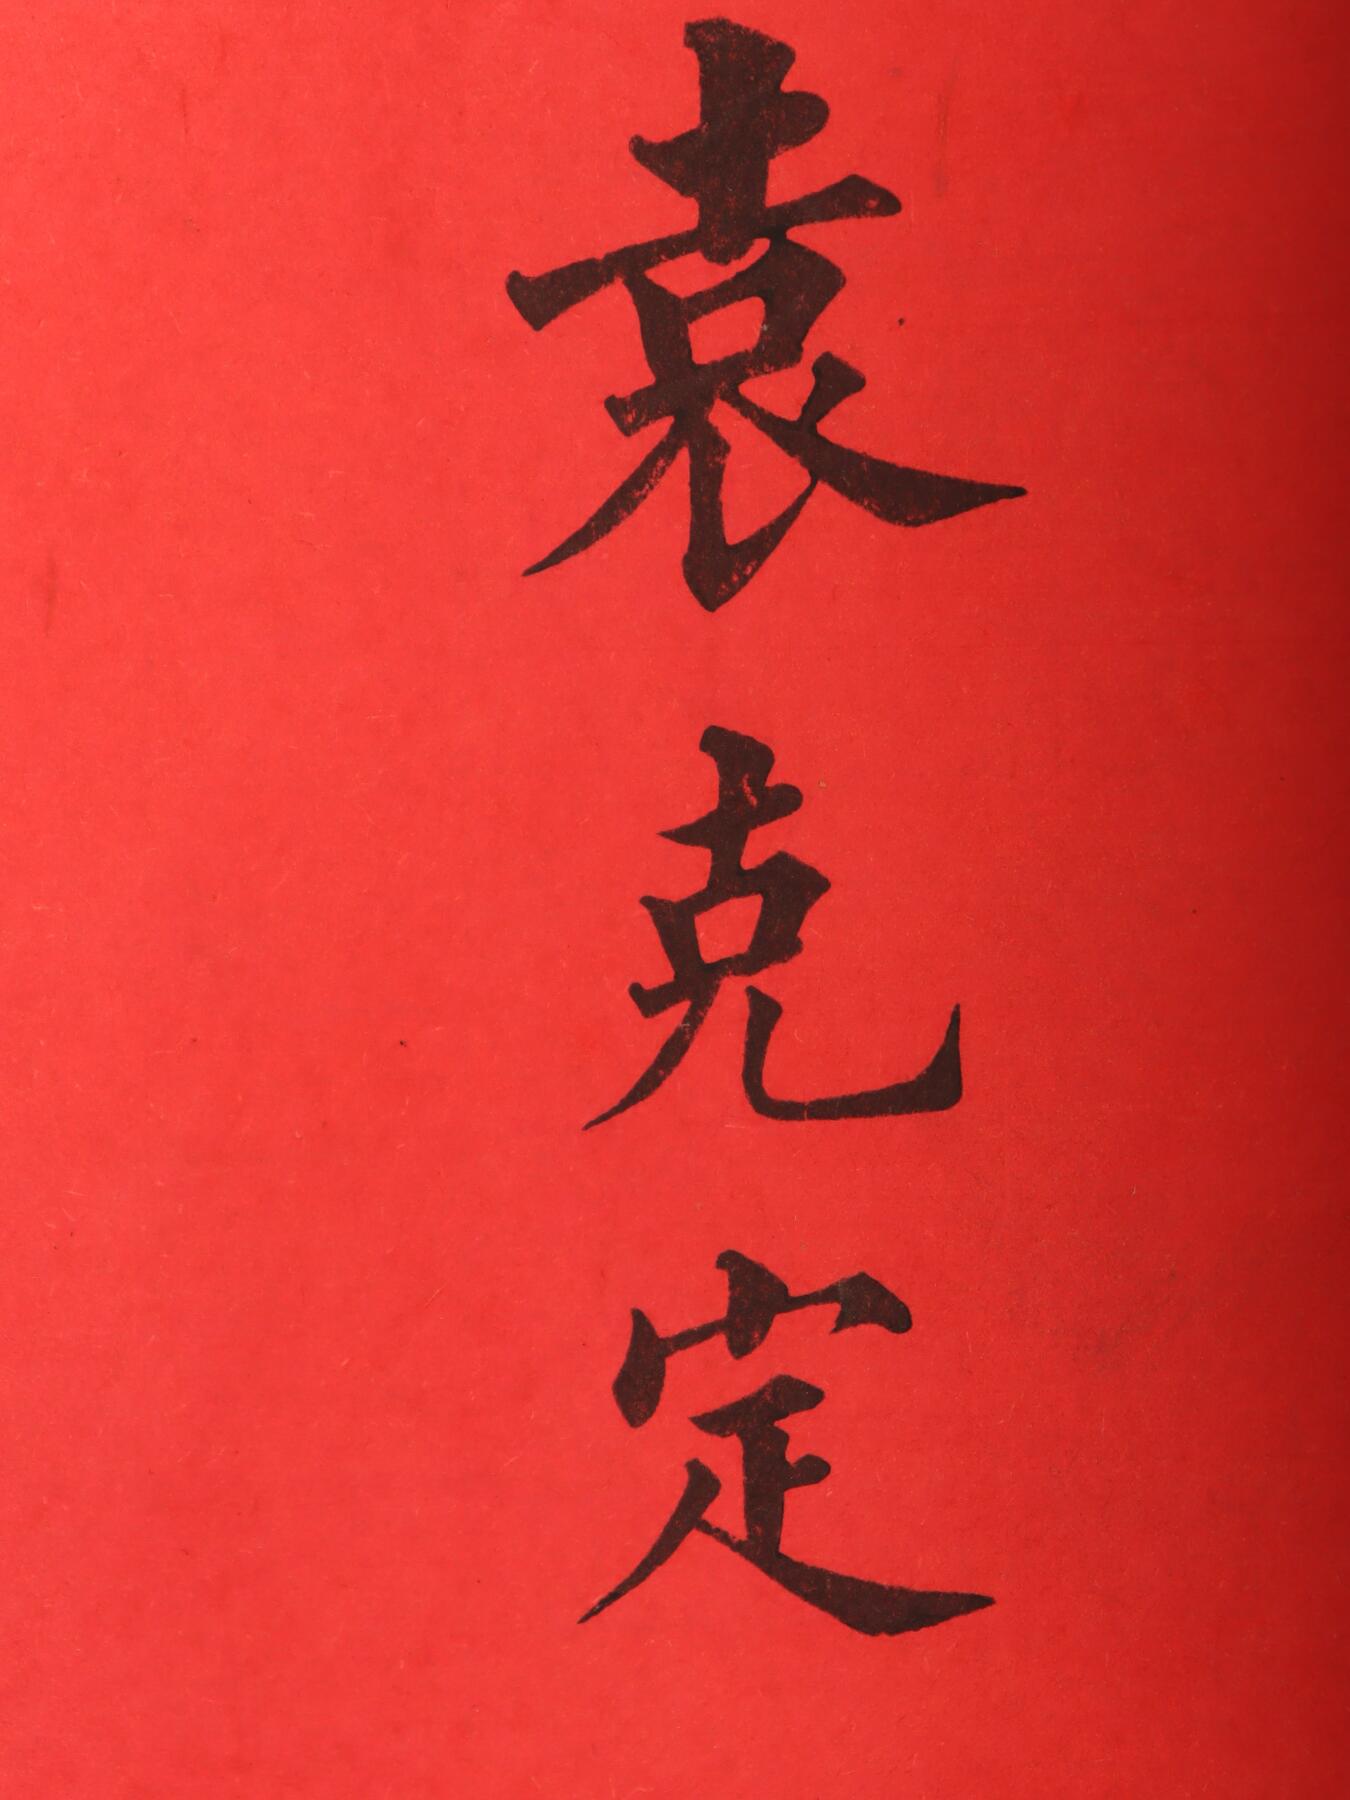 袁克定